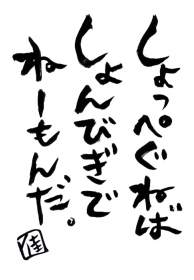 しょっぺぐねば
しょんびぎで
ねーもんだ。
佳